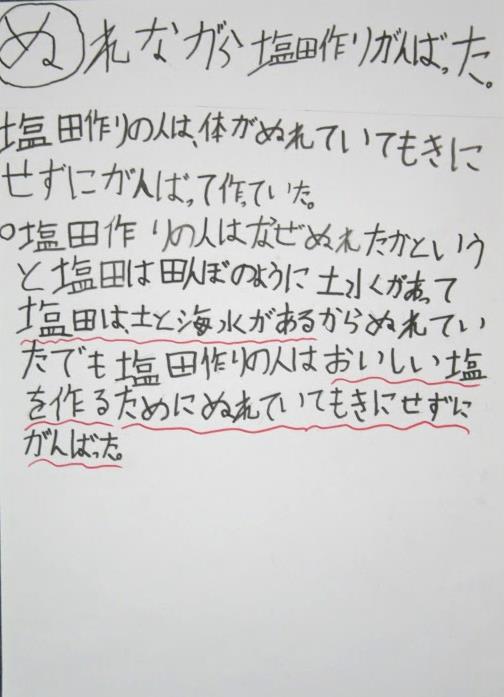 ぬれながら塩田作りがんばった。
塩田作りの人は、体がぬれていてもきに
せずにがんばって作っていた。
○塩田作りの人はなぜぬれたかという
と塩田は田んぼのように土水があって
塩田は、土と海水があるからぬれてい
たでも塩田作りの人はおいしい塩
を作るためにぬれていてもきにせずに
がんばった。